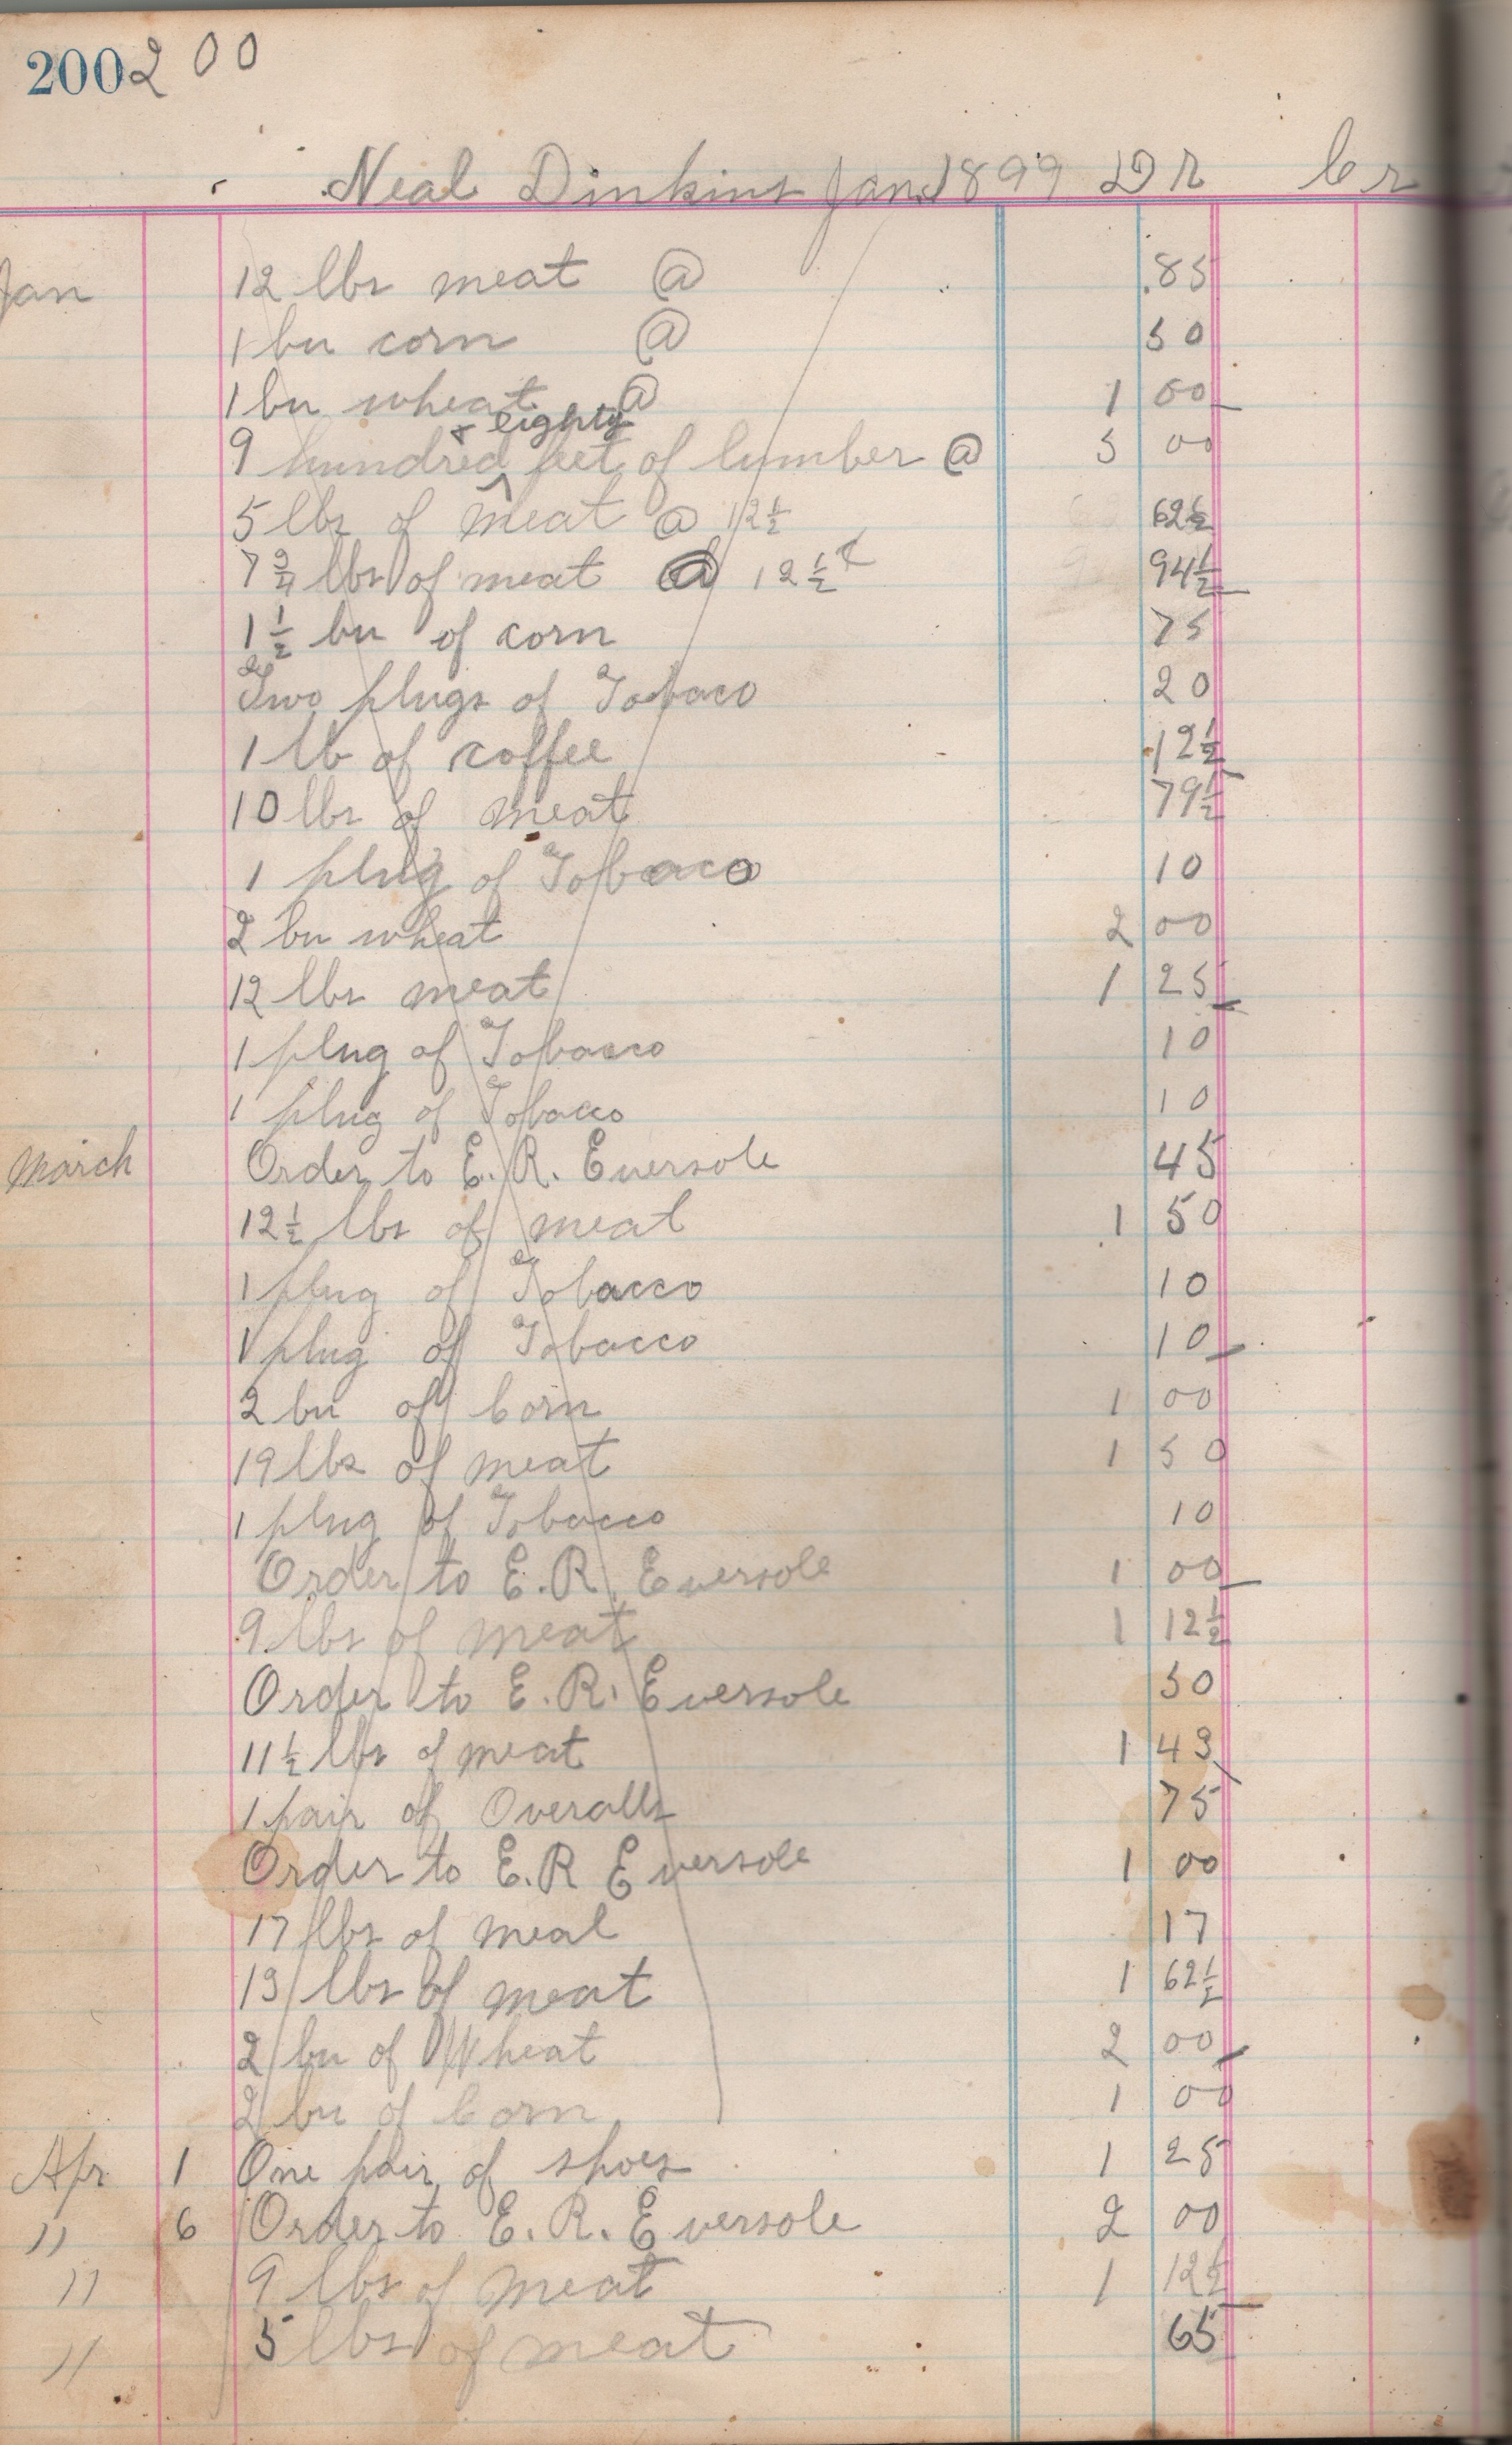 200 2 00
Neal Dinkins Jan. 1899 Dr Cr
Jan 12 lbs meat @ .85
1 bu corn @ 50
1 bu wheat @ 1 00
& eighty
9 hundred ^ feet of lumber @ 5 00
5 lbs of meat @ 12½ 62½
7¾ lbs of meat @ 12½ ¢ 94½
1½ bu of corn 75
Two plugs of Tobaco 20
1 lb of coffee 12½
10 lbs of meat 79½
1 plug of Tobaco 10
2 bu wheat 2 00
12 lbs meat 1 25
1 plug of Tobacco 10
1 plug of Tobacco 10
March Order to E. R. Eversole 45
12½ lbs of meat 1 50
1 plug of Tobacco 10
1 plug of Tobacco 10
2 bu of Corn 1 00
19 lbs of meat 1 50
1 plug of Tobacco 10
Order to E. R. Eversole 1 00
9 lbs of meat 1 12½
Order to E. R. Eversole 50
11½ lbs of meat 1 43
1 pair of Overalls 75
Order to E. R Eversole 1 00
17 lbs of meal 17
13 lbs of meat 1 62½
2 bu of Wheat 2 00
2 bu of Corn 1 00
Apr 1 One pair of shoes 1 25
" 6 Order to E. R. Eversole 2 00
" 9 lbs of meat 1 12½
" 5 lbs of meat 65